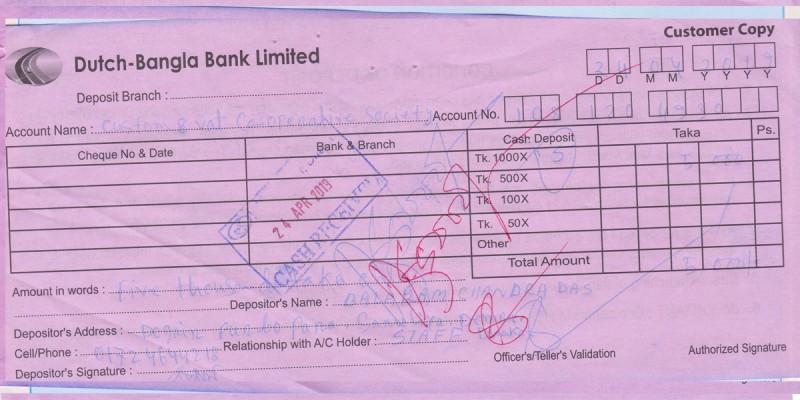 Customer Copy
Dutch-Bangla Bank Limited
24 04 2019
D D M M Y Y Y Y
Deposit Branch :
Account Name : Custom & vat Co-operative Society Account No. 108 120
Cheque No & Date Bank & Branch Cash Deposit Taka Ps.
Tk. 1000X 5 5 000
Tk. 500X
Tk. 100X
Tk. 50X
Other
Total Amount 5 000/-
24 APR 2019
CASH RECEIVED
Amount in words : Five thousand taka
Depositor's Name : BALARAM CHANDRA DAS
Depositor's Address :
Cell/Phone : Relationship with A/C Holder : STAFF
Depositor's Signature :
Officer's/Teller's Validation
Authorized Signature